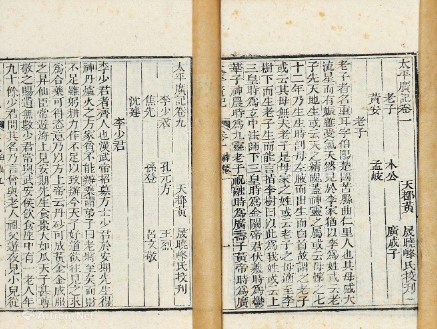 太平廣記卷一
天都黃 晟曉峰氏校刊
老子 木公 廣成子
黃安 孟岐
老子
老子者名重耳字伯陽楚國苦縣曲仁里人也其母感大
流星而有娠雖受氣天然見於李家猶以李為姓或云老
子先天地生或云天之精魄蓋神靈之屬或云母懷之七
十二年乃生生時剖母左腋而出生而白首故謂之老子
或云其母無夫老子是母家之姓或云老子之母適至李
樹下而生老子生而能言指李樹曰以此為我姓或云上
三皇時為玄中法師下三皇時為金闕帝君伏羲時為鬱
華子神農時為九靈老子祝融時為廣壽子黃帝時為廣
太平廣記卷九
天都黃 晟曉峰氏校刊
李少君 孔元方 王烈
焦先 孫登 呂文敬
沈建
李少君
李少君者齊人也漢武帝招募方士少君於安期先生得
神丹爐火之方家貧不能辦藥謂弟子曰老將至矣而財
不足雖躬耕力作不足以致辦今天子好道欲往見之求
為合藥可得恣意乃以方上帝云丹砂可成黃金金成服
之昇仙臣常遊海上見安期先生食棗大如瓜天子甚尊
敬之賜遺無數少君嘗與武安侯飲食座中有一老人年
九十餘少君問其名乃言曾與老人祖父遊夜見小兒從